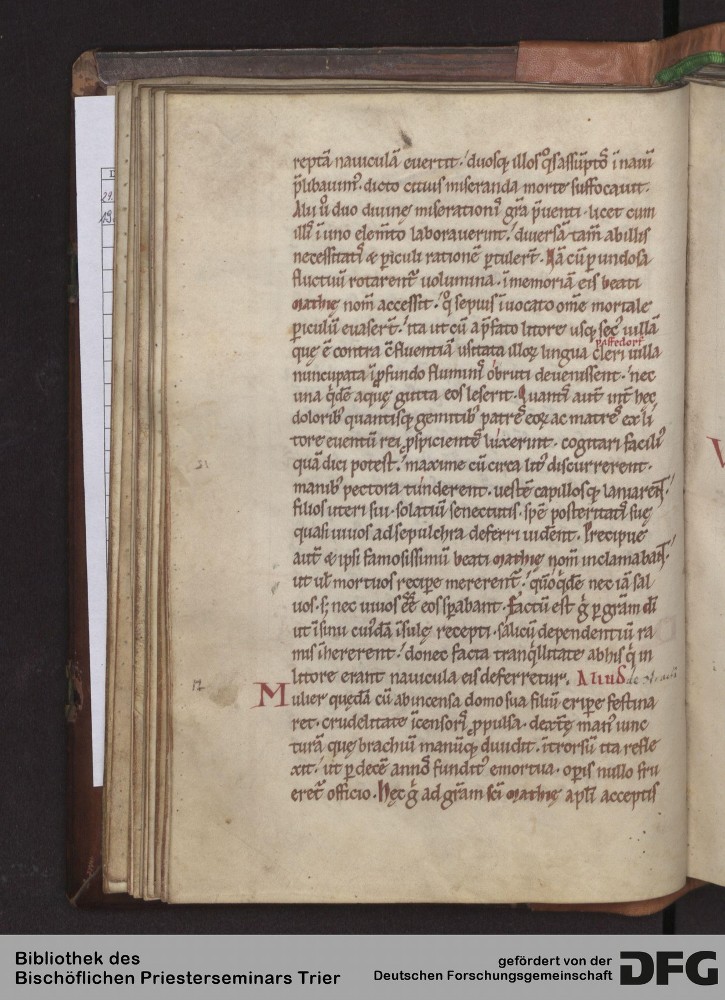 reptā nauiculā euertit. duosq; illos q̊s assūptos ī naui
p̄libauim᷒. dicto citius miseranda morte suffocauit.
Alii u̾o duo diuinę miserationis gr̄a p̄uenti. licet cum
illis ī uno elem̄to laborauerint. diuersā tam̄ ab illis
necessitatis & piculi rationē ptulert̄. Nā cū p undosa
fluctuū rotarent̄ uolumina. ī memoriā eis beati
mathię nom̄ accessit. q̊ sepius īuocato om̄e mortale
piculū euasert̄. ita ut cū a p̄fato litore usq; sec᷒ uillā
passedorf
quę ē contra c̄fluentiā usitata illoꝝ lingua cleri uilla
nuncupata ī pfundo fluminis obruti deuenissent. nec
una q̇dē aquę gutta eos leserit. Quantis aut̄ int̄ hęc
dolorib; quantisq; gemitib; patres eoꝝ ac matres ex li
tore euentū rei pspicientes luxerint. cogitari facili᷒
quā dici potest. maxime cū circa lit᷒ discurrerent.
manib; pectora tunderent. uestē capillosq; laniarent.
filios uteri sui. solatiū senectutis. spē posteritatis suę
quasi uiuos ad sepulchra deferri uident̄. Precipue
aut̄ & ipsi famosissimū beati mathię nom̄ inclamabant.
ut ul̄ mortuos recipe mererent̄. quoq̇dē nec iā sal
uos. s; nec uiuos eē eos spabant. Factū est g̊ p gr̄am dī
ut ī sinu cui᷒dā īsulę recepti. salicū dependentiū ra
mis īhererent. donec facta tranq̇llitate ab his q̇ in
litore erant nauicula eis deferretur. Aliud
17
Mulier quędā cū ab incensa domo sua filiū eripe festina
ret. crudelitate īcensoris ppulsa. dextrę man᷒ iunc
turā quę brachiū manūq; diuidit. ītrorsū ita refle
xit. ut p decē annos fundit᷒ emortua. opis nullo fru
eret̄ officio. Hęc g̊ ad gr̄am sc̄i mathię apl̄i acceptis
Bibliothek des
Bischöflichen Priesterseminars Trier
gefördert von der
Deutschen Forschungsgemeinschaft
DFG